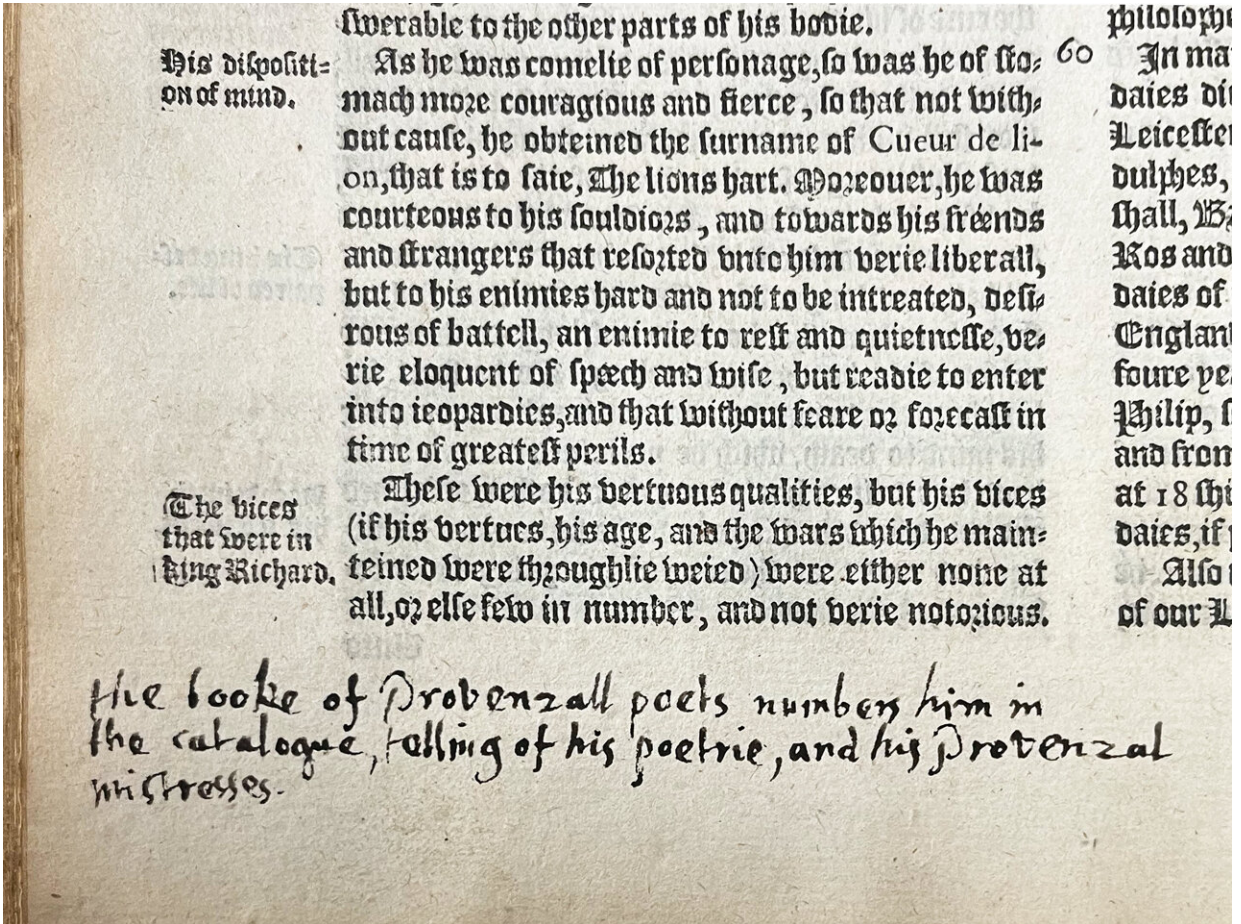 swerable to the other parts of his bodie.
His dispositi=
on of mind.
As he was comelie of personage, so was he of sto-
mach more couragious and fierce, so that not with-
out cause, he obteined the surname of Cueur de li-
on, that is to saie, The lions hart. Moreouer, he was
courteous to his souldiors, and towards his fréends
and strangers that resorted vnto him verie liberall,
but to his enimies hard and not to be intreated, desi-
rous of battell, an enimie to rest and quietnesse, ve-
rie eloquent of spéech and wise, but readie to enter
into ieopardies, and that without feare or forecast in
time of greatest perils.
The vices
that were in
king Richard.
These were his vertuous qualities, but his vices
(if his vertues, his age, and the wars which he main=
teined were throughlie weied) were either none at
all, or else few in number, and not verie notorious.
60
In ma
daies
Leicester
dulphes,
shall,
Ros and
daies of
England
foure
Philip,
and from
at 18
daies, if
Also
of our
the booke of Provenzall poets numbers him in
the catalogue, telling of his poetrie, and his Provenzal
mistresses.